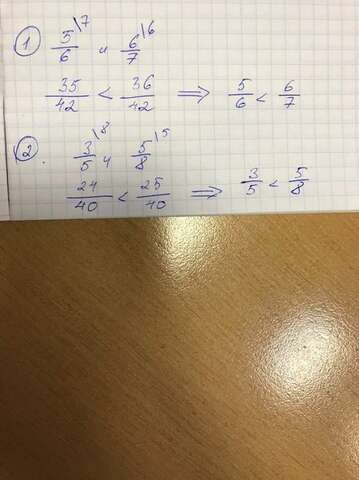 1 5/6 \7 и 6/7 \6
35/42 < 36/42 ⇒ 5/6 < 6/7
2. 3/5 \8 и 5/8 \5
24/40 < 25/40 ⇒ 3/5 < 5/8